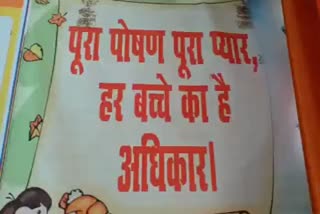 पूरा पोषण पूरा प्यार,
हर बच्चे का है
अधिकार।